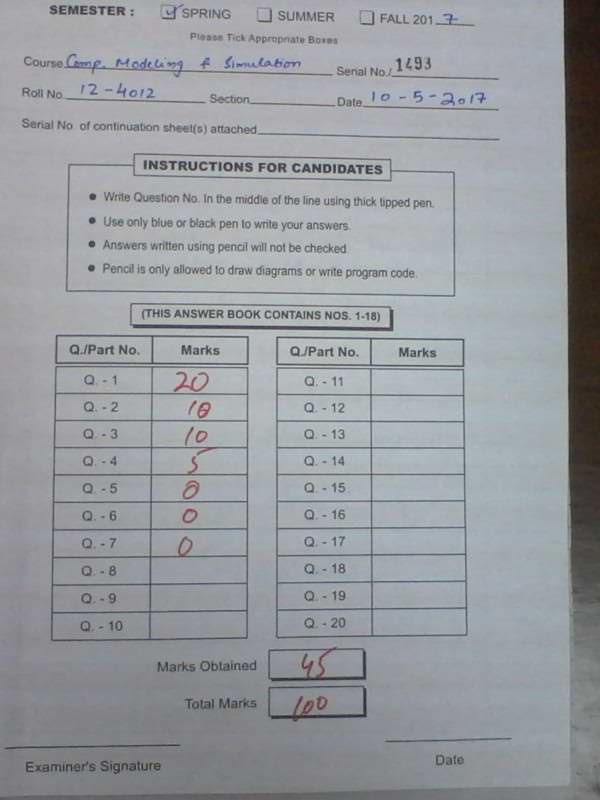 SEMESTER : SPRING SUMMER FALL 2017
Please Tick Appropriate Boxes
Course Comp. Modeling & Simulation Serial No./ 1493
Roll No. 12-4012 Section Date 10-5-2017
Serial No. of continuation sheet(s) attached
INSTRUCTIONS FOR CANDIDATES
Write Question No. In the middle of the line using thick tipped pen.
Use only blue or black pen to write your answers.
Answers written using pencil will not be checked.
Pencil is only allowed to draw diagrams or write program code.
(THIS ANSWER BOOK CONTAINS NOS. 1-18)
Q./Part No. Marks Q./Part No. Marks
Q. - 1 20 Q. - 11
Q. - 2 10 Q. - 12
Q. - 3 10 Q. - 13
Q. - 4 5 Q. - 14
Q. - 5 0 Q. - 15
Q. - 6 0 Q. - 16
Q. - 7 0 Q. - 17
Q. - 8 Q. - 18
Q. - 9 Q. - 19
Q. - 10 Q. - 20
Marks Obtained 45
Total Marks 100
Examiner's Signature Date